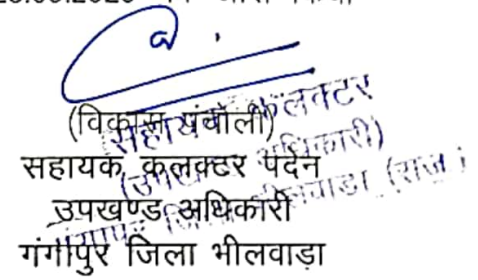 (विकास पंचोली)
सहायक कलक्टर पदेन
उपखण्ड अधिकारी
गंगापुर जिला भीलवाड़ा
सहायक कलक्टर
(उपखण्ड अधिकारी)
गंगापुर जिला भीलवाडा (राज.)